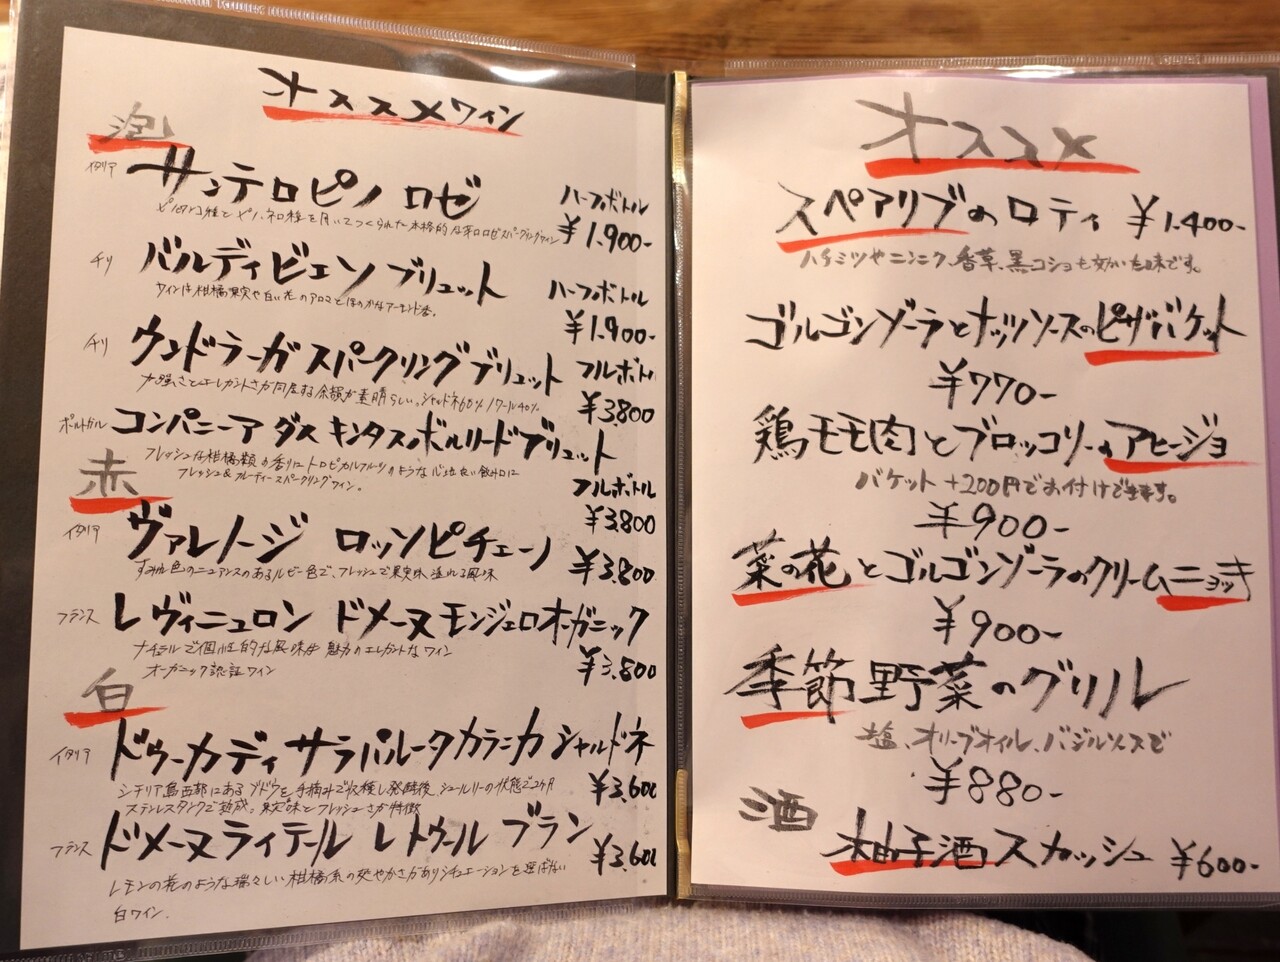 オススメワイン
泡
イタリア
サンテロ ピノ ロゼ
ハーフボトル
¥1.900-
チリ
バルディビエソ ブリュット
ワインは柑橘果実や白い花のアロマとほのかなアーモンド香。
ハーフボトル
¥1.900-
チリ
ウンドラーガ スパークリング ブリュット
力強さとエレガントさが同居する余韻が素晴らしい。シャルドネ60% ノワール40%
フルボトル
¥3.800
ポルトガル
コンパニーア ダス キンタス ボルリード ブリュット
フレッシュな柑橘類の香りにトロピカルフルーツのような心地良い飲み口に
フレッシュ&フルーティースパークリングワイン。
フルボトル
¥3.800
赤
イタリア
ヴァレノージ ロッソピチェーノ
すみれ色のニュアンスのあるルビー色で、フレッシュで果実味溢れる風味
¥3.800
フランス
レヴィニュロン ドメーヌ モンジェロ オーガニック
ナチュラルで個性的な風味が魅力のエレガントなワイン
オーガニック認証ワイン
¥3.800
白
イタリア
ドゥーカディ サラパルータ カラニカ シャルドネ
シチリア島西部にあるブドウを手摘みで収穫し発酵後、シュールリーの状態で2ヶ月
ステンレスタンクで熟成。果実味とフレッシュさが特徴
¥3.600
フランス
ドメーヌ ライテール レトゥール ブラン
レモンの花のような瑞々しい柑橘系の爽やかさがありシチュエーションを選ばない
白ワイン.
¥3.600
オススメ
スペアリブのロティ ¥1.400-
ハチミツやニンニク、香草、黒コショウも効いた味です。
ゴルゴンゾーラとナッツソースのピザバケット
¥770-
鶏モモ肉とブロッコリーのアヒージョ
バケット +200円でお付けできます。
¥900-
菜の花とゴルゴンゾーラのクリームニョッキ
¥900-
季節野菜のグリル
塩、オリーブオイル、バジルソースで
¥880-
酒
柚子酒スカッシュ ¥600-